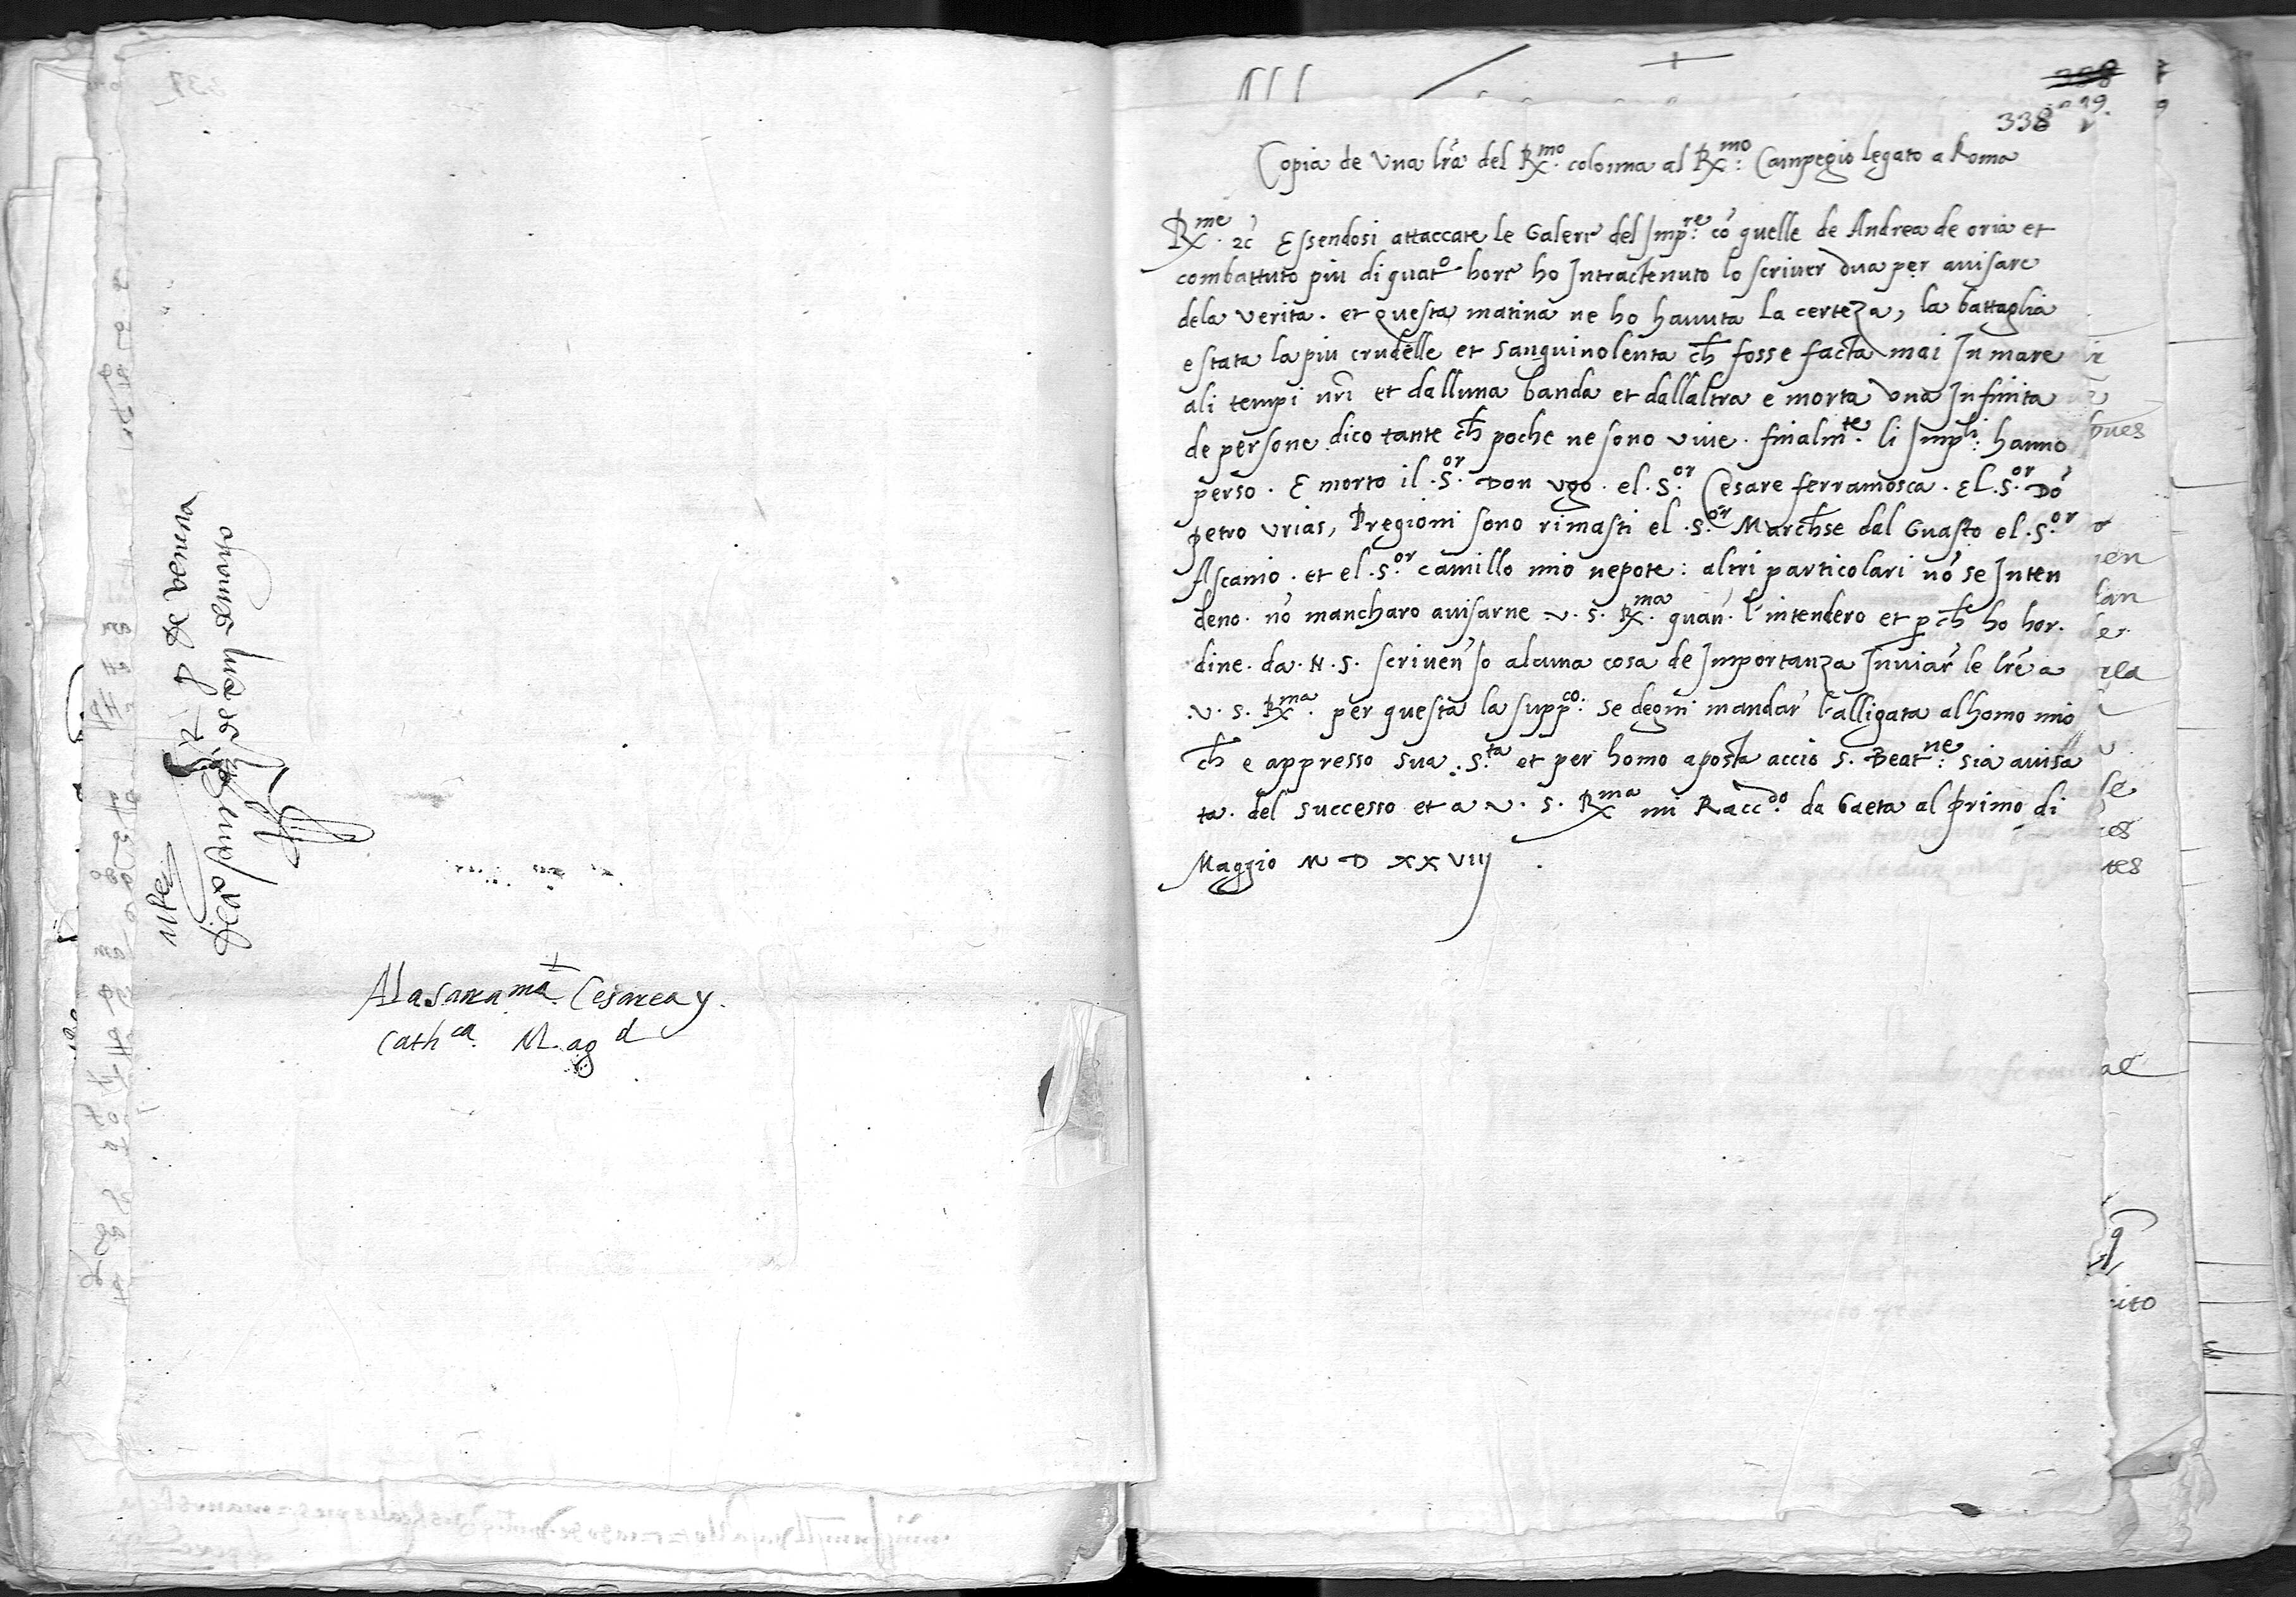 Ala sacra ma. Cesarea y
Cath ca. Mag d
338
Copia de Una lr̃a del Rx.mo colonna al Rx.mo: Campegio legato a Roma
Rx.me 2c̃ Essendosi attaccate le Galere del Imp.re cõ quelle de Andrea de oria et
combattuto piu di quat.o hore ho Intractenuto lo scriver Ova per avisare
dela verita. et questa matina ne ho havuta la certeza, la battaglia
e stata la piu crudelle et sanguinolenta ch̃ fosse facta mai In mare
ali tempi nr̃i et dalluna banda et dallaltra e morta Una Infinita
de persone dico tante ch̃ poche ne sono vive. finalm.te li Imp.li: hanno
perso. E morto il .S.or Don Ugo. el .S.or Cesare ferramosca. El .S.or Dõ
petro Urias, Pregioni sono rimasti el .S.or March̃se dal Guasto el .S.or
Ascanio. et el .S.or camillo mio nepote: altri particolari nõ se Inten
deno. nõ mancharo avisarne .v. S. Rx.ma quañ. l'intendero et p ch̃ ho hor.
dine. da. N. S. scriveñso alcuna cosa de Importanza Inviar̃ le lr̃e a
.v. S. Rx.ma. per questa la supp.co: se degni mandar̃ l'alligata alhomo mio
ch̃ e appresso sua .S.ta et per homo aposta accio S. Beat.ne: sia avisa
ta. del successo et a .v. S. Rx.ma mi Racc.do da Gaeta al primo di
Maggio M D XXVIIJ.